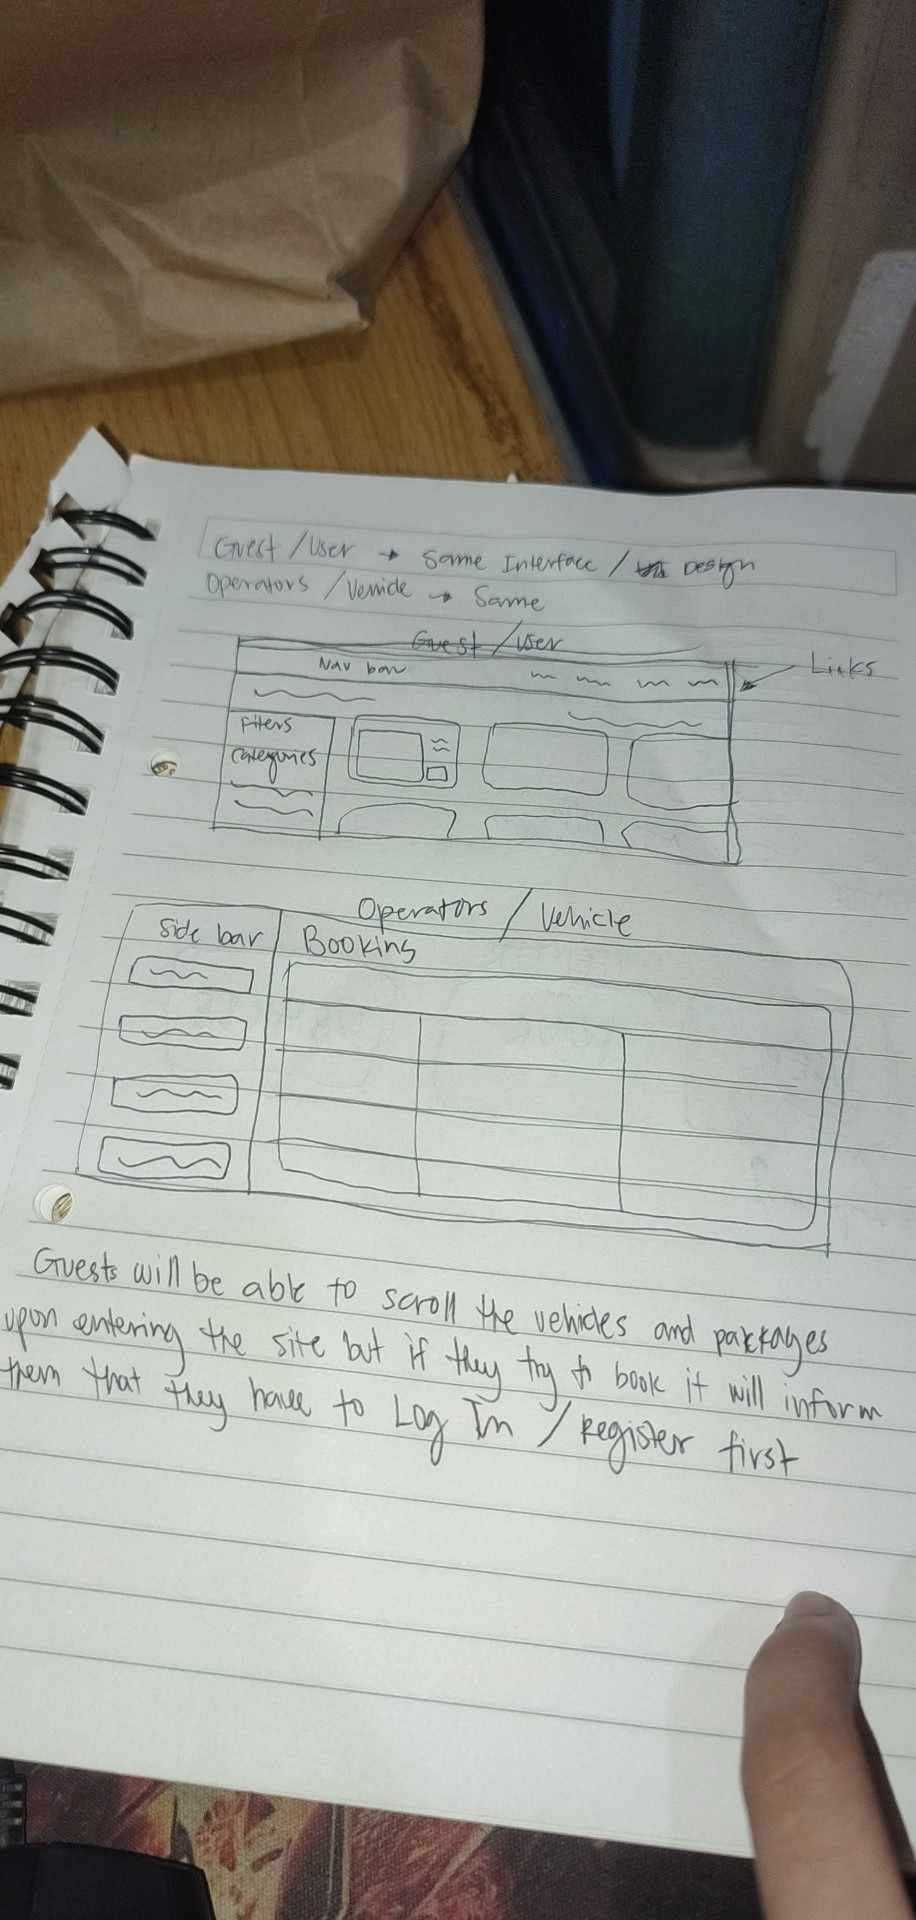 Guest / User → Same Interface / Design
Operators / Vehicle → Same
Guest / User
Nav bar
Links
Filters
Categories
Operators / Vehicle
Side bar
Booking
Guests will be able to scroll the vehicles and packages
upon entering the site but if they try to book it will inform
them that they have to Log In / Register first